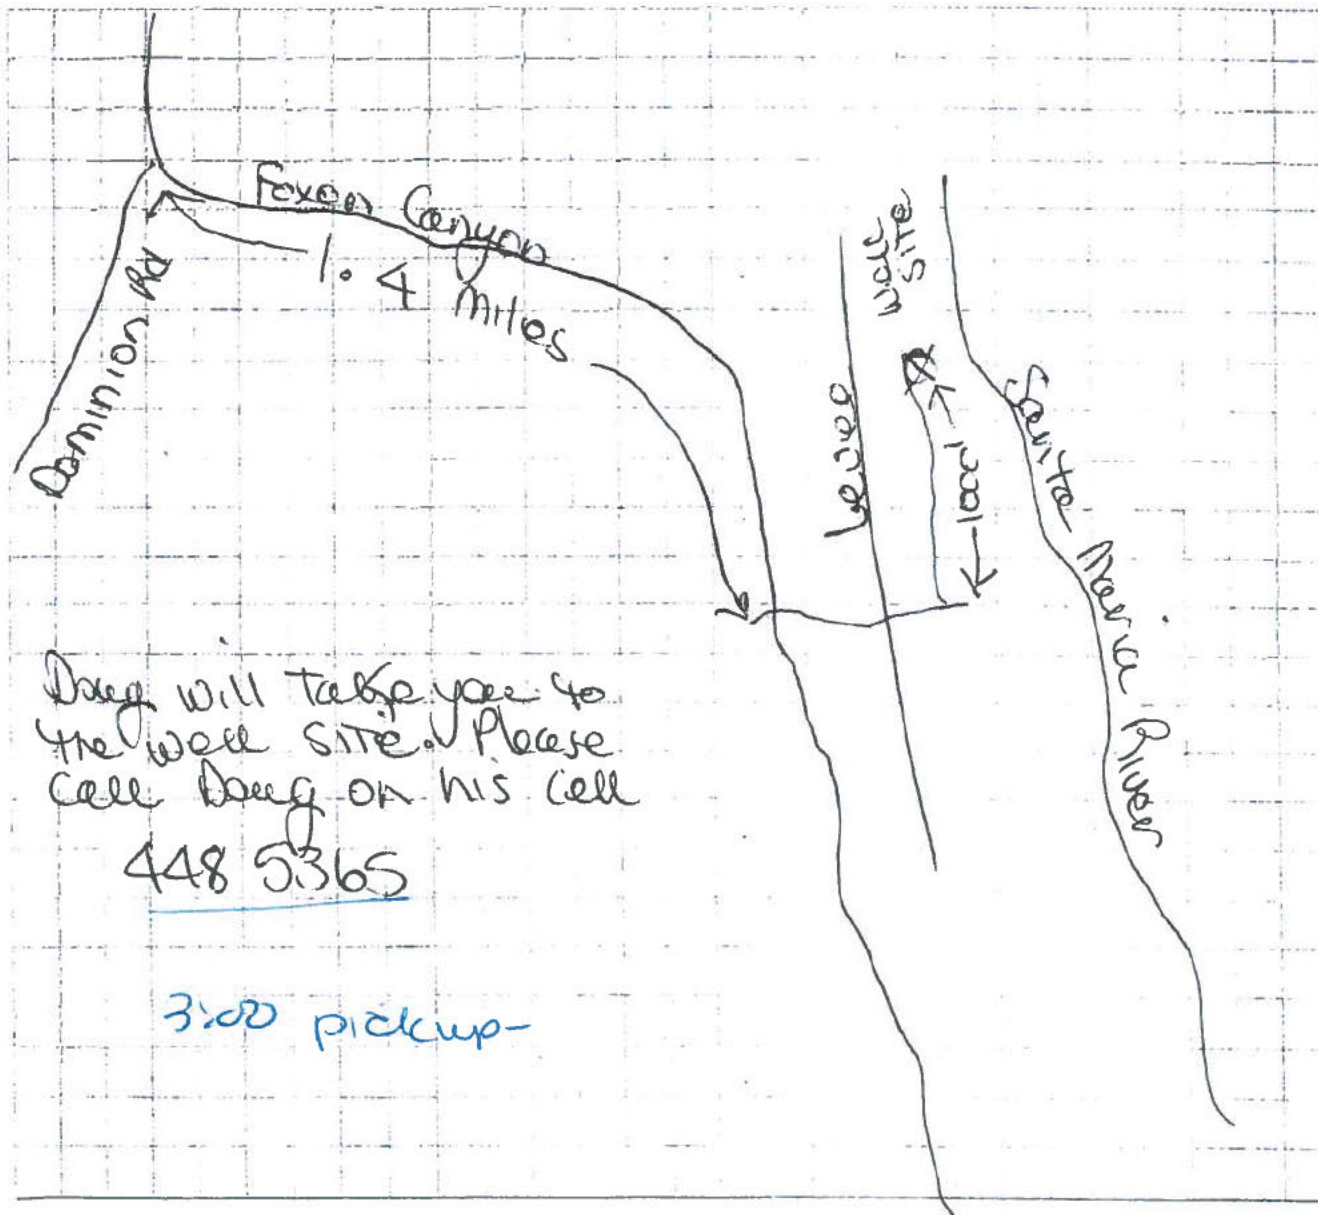 Foxen Canyon
1.4 Miles
Dominion Rd
Well
Site
Levee
1000'
Santa Maria River
Doug will take you to
the well site. Please
call Doug on his cell
448 5365
3:00 pickup-